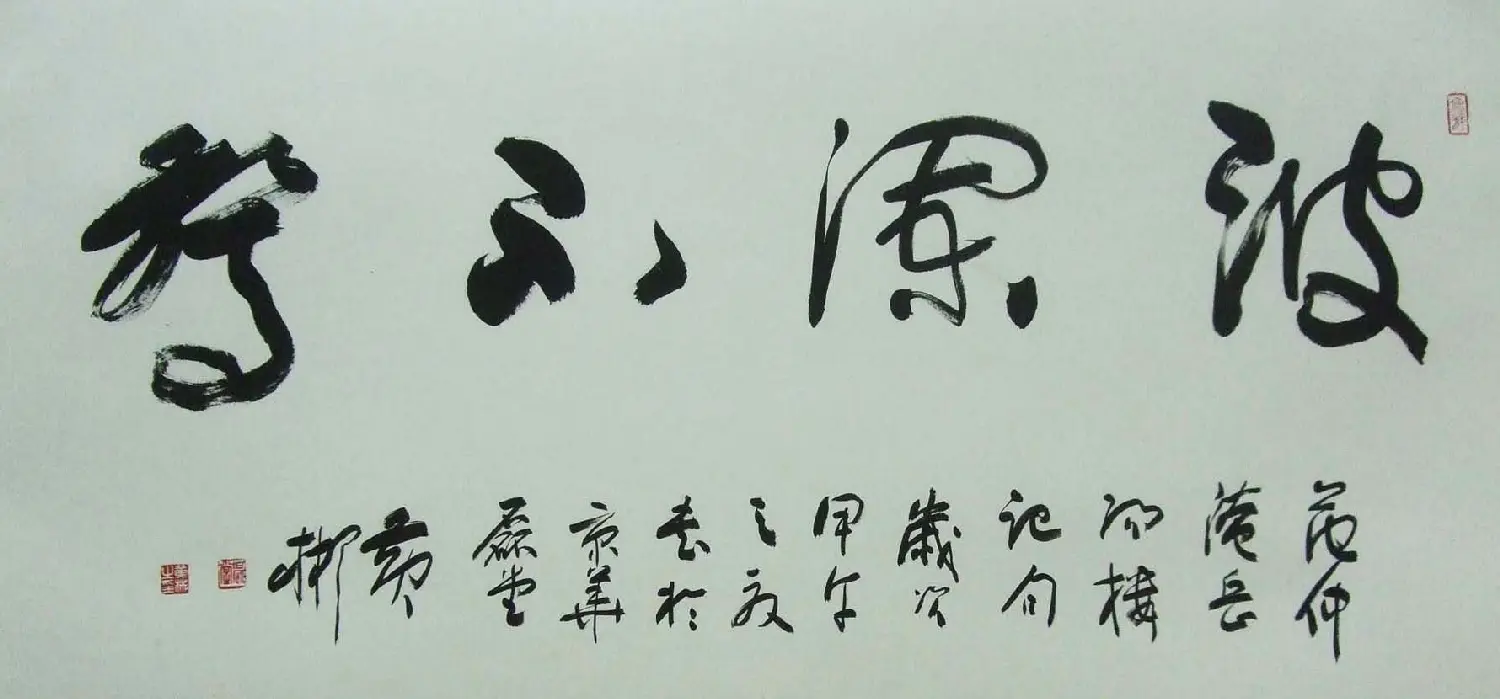 波瀾不驚
范仲
淹岳
陽樓
記句
歲次
甲午
之
書於
京華
堂
黄